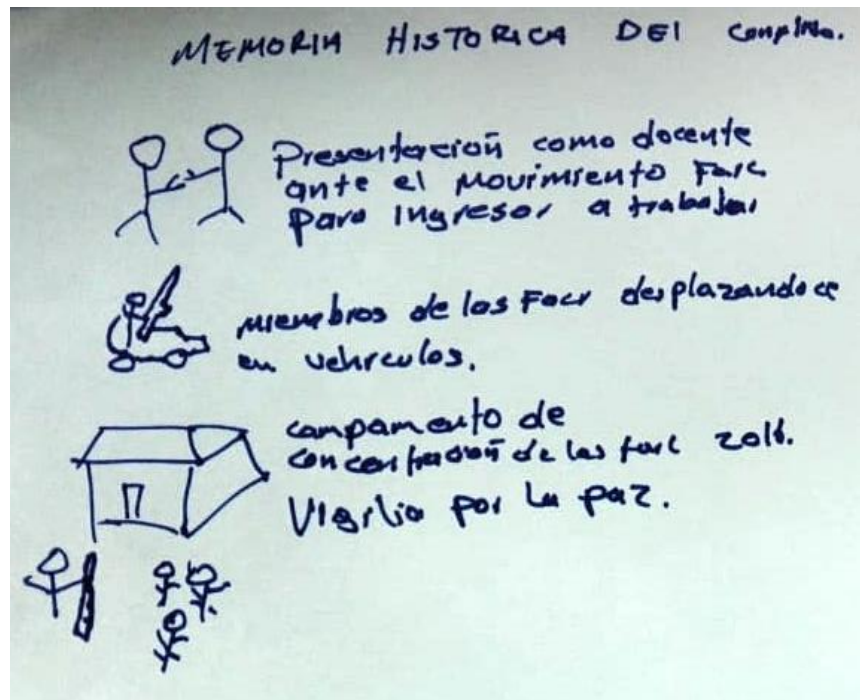 MEMORIA HISTORICA DEl
Presentacioñ como docente
ante el Movimiento Farc
para ingresar a trabajar
miembros de las Facr desplazandoce
en vehiculos.
campamento de
concentracioñ de las farc 2016.
Vigilia por la paz.